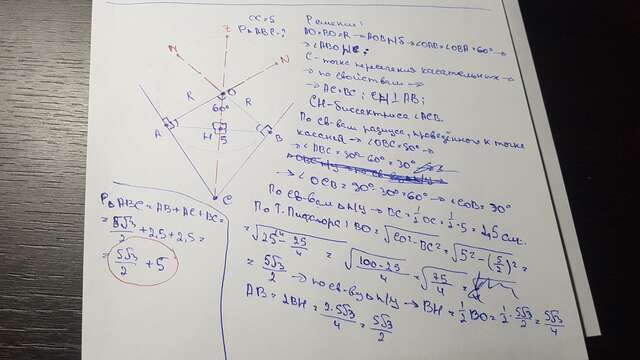 x=5
P▵ABC-?
Z
N
N
O
R
R
60°
A
H
5
B
C
Решение:
AO=BO=R → AOB ∠OAB=∠OBA=60° →
→ ∠ABO
C - точка пересечения касательных →
→ по свойствам →
→ AC=BC; CH⊥AB;
CH-биссектриса ∠ACB.
По св-вам радиуса, проведённого к точке
касания → ∠OBC=90° →
→ ∠ABC=90°-60°=30°
→ ∠OCB=90°-30°=60° → ∠COB=30°
По св-вам ▵п/у → BC=1/2 OC=1/2·5=2,5 см.
По Т. Пифагора: BO=√OC²-BC²=√5²-(5/2)²=
=√25-25/4=√100-25/4=√75/4=
=5√3/2 → по св-ву ▵п/у → BH=1/2 BO=1/2·5√3/2=5√3/4
AB=2BH=2·5√3/4=5√3/2
P▵ABC=AB+AC+BC=
=5√3/2+2,5+2,5=
=5√3/2+5